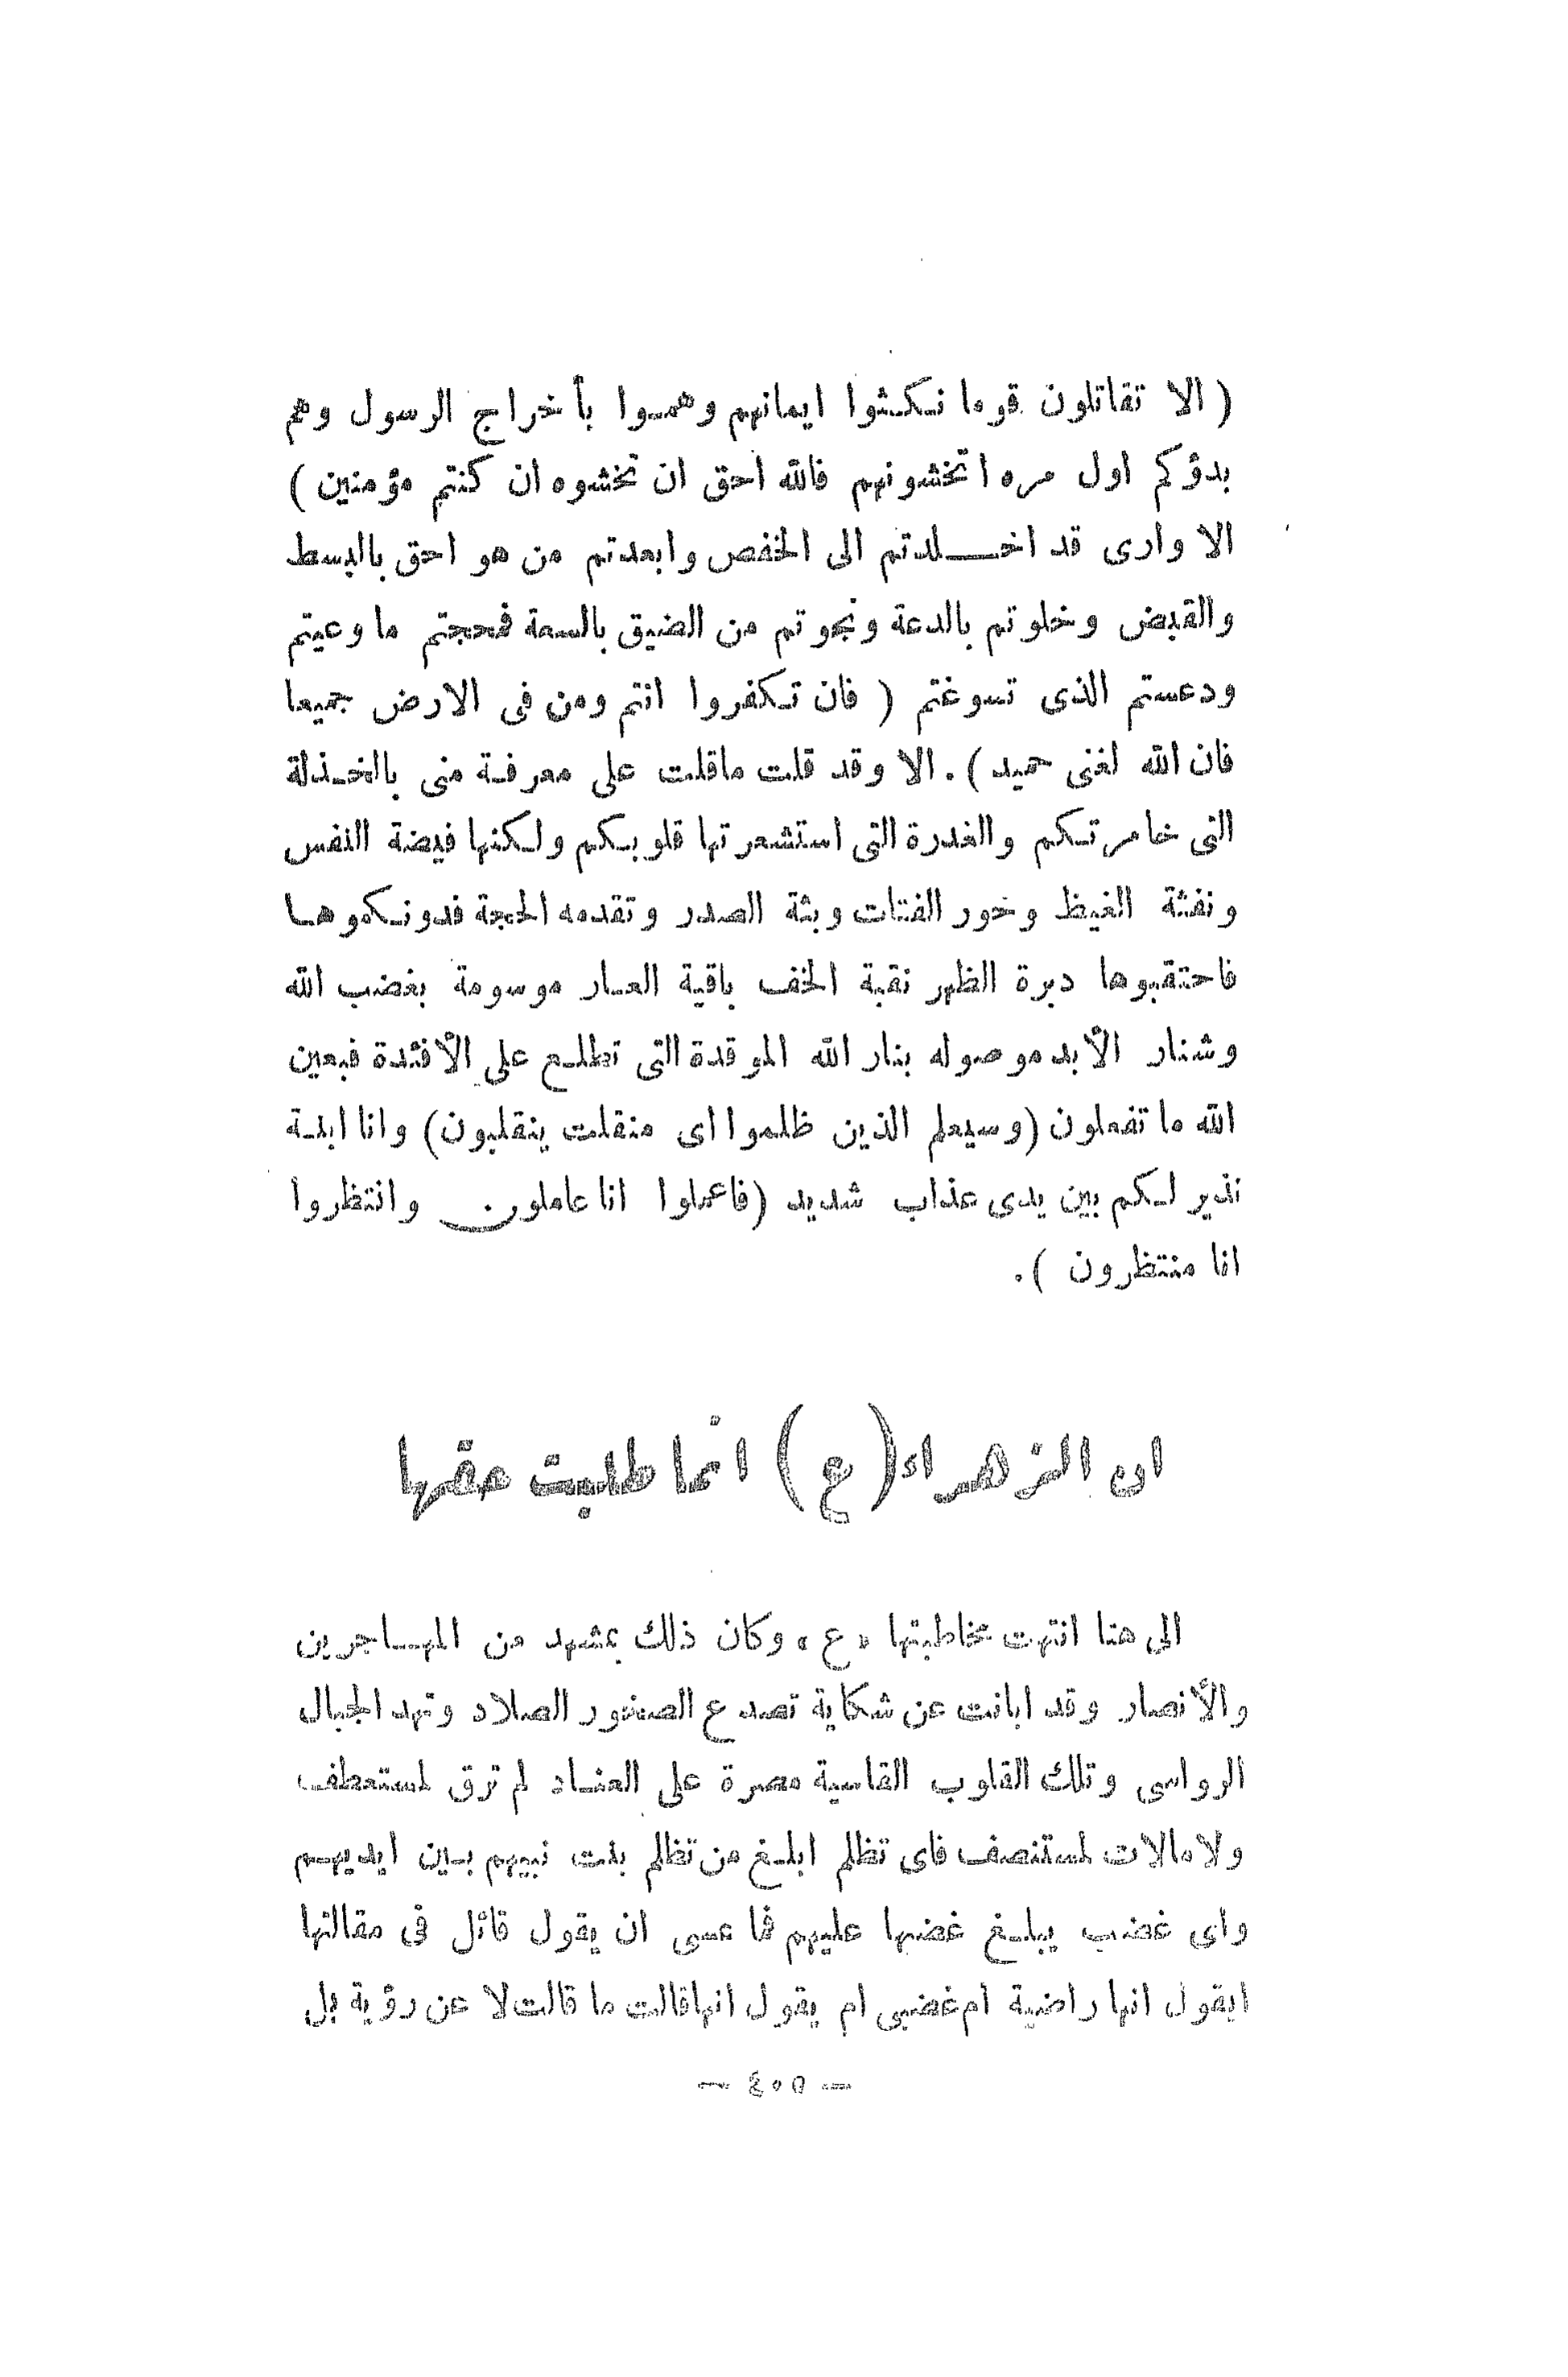 ( الا تقاتلون قوما نكثوا ايمانهم وهموا بأخراج الرسول وهم
بدؤكم اول مره اتخشونهم فالله احق ان تخشوه ان كنتم مؤمنين )
الا وارى قد اخلدتم الى الخفص وابعدتم من هو احق بالبسط
والقبض وخلوتم بالدعة ونجوتم من الضيق بالسعة فمججتم ما وعيتم
ودعستم الذى تسوغتم ( فان تكفروا انتم ومن فى الارض جميعا
فان الله لغنى حميد ) . الا وقد قلت ماقلت على معرفة منى بالخذلة
التى خامرتكم والغدرة التى استشعرتها قلوبكم ولكنها فيضة النفس
ونفثة الغيظ وخور الفتات وبثة الصدر وتقدمه الحجة فدونكموها
فاحتقبوها دبرة الظهر نقبة الخف باقية العار موسومة بغضب الله
وشنار الأبد موصوله بنار الله الموقدة التى تطلع على الأفئدة فبعين
الله ما تفعلون (وسيعلم الذين ظلموا اى منقلت ينقلبون) وانا ابنة
نذير لكم بين يدى عذاب شديد (فاعملوا انا عاملون وانتظروا
انا منتظرون ) .
ان الزهراء (ع) انما طلبت حقها
الى هنا انتهت مخاطبتها «ع» وكان ذلك بمشهد من المهاجرين
والأنصار وقد ابانت عن شكاية تصدع الصخور الصلاد وتهد الجبال
الرواسى وتلك القلوب القاسية مصرة على العناد لم ترق لمستعطف
ولا مالات لمستنصف فاى تظلم ابلغ من تظلم بنت نبيهم بين ايديهم
واى غضب يبلغ غضبها عليهم فما عسى ان يقول قائل فى مقالتها
ايقول انها راضية ام غضبى ام يقول انها قالت ما قالت لا عن رؤية بل
— ٤٠٥ —